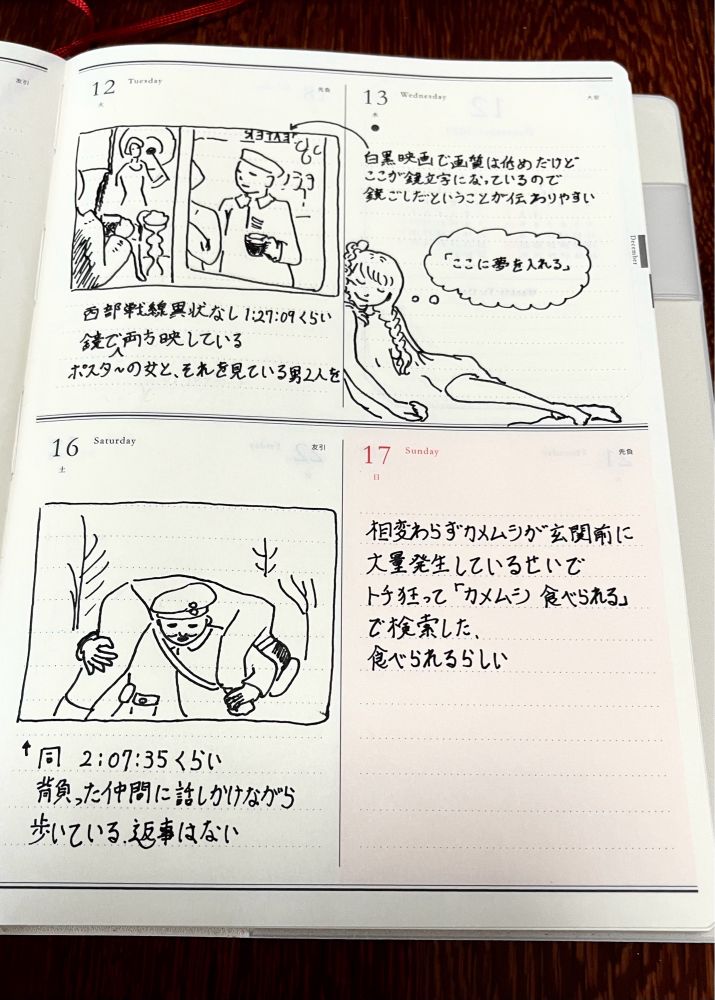 12 Tuesday
火
友引
先負
13 Wednesday
水
大安
白黒映画で画質は低めだけど
ここが鏡文字になっているので
鏡ごしだということが伝わりやすい
「ここに夢を入れる」
December
西部戦線異状なし 1:27:09くらい
鏡で両方映している
ポスターの女と、それを見ている男2人を
16 Saturday
土
友引
17 Sunday
日
先負
相変わらずカメムシが玄関前に
大量発生しているせいで
トチ狂って「カメムシ 食べられる」
で検索した、
食べられるらしい
↑同 2:07:35くらい
背負った仲間に話しかけながら
歩いている、返事はない